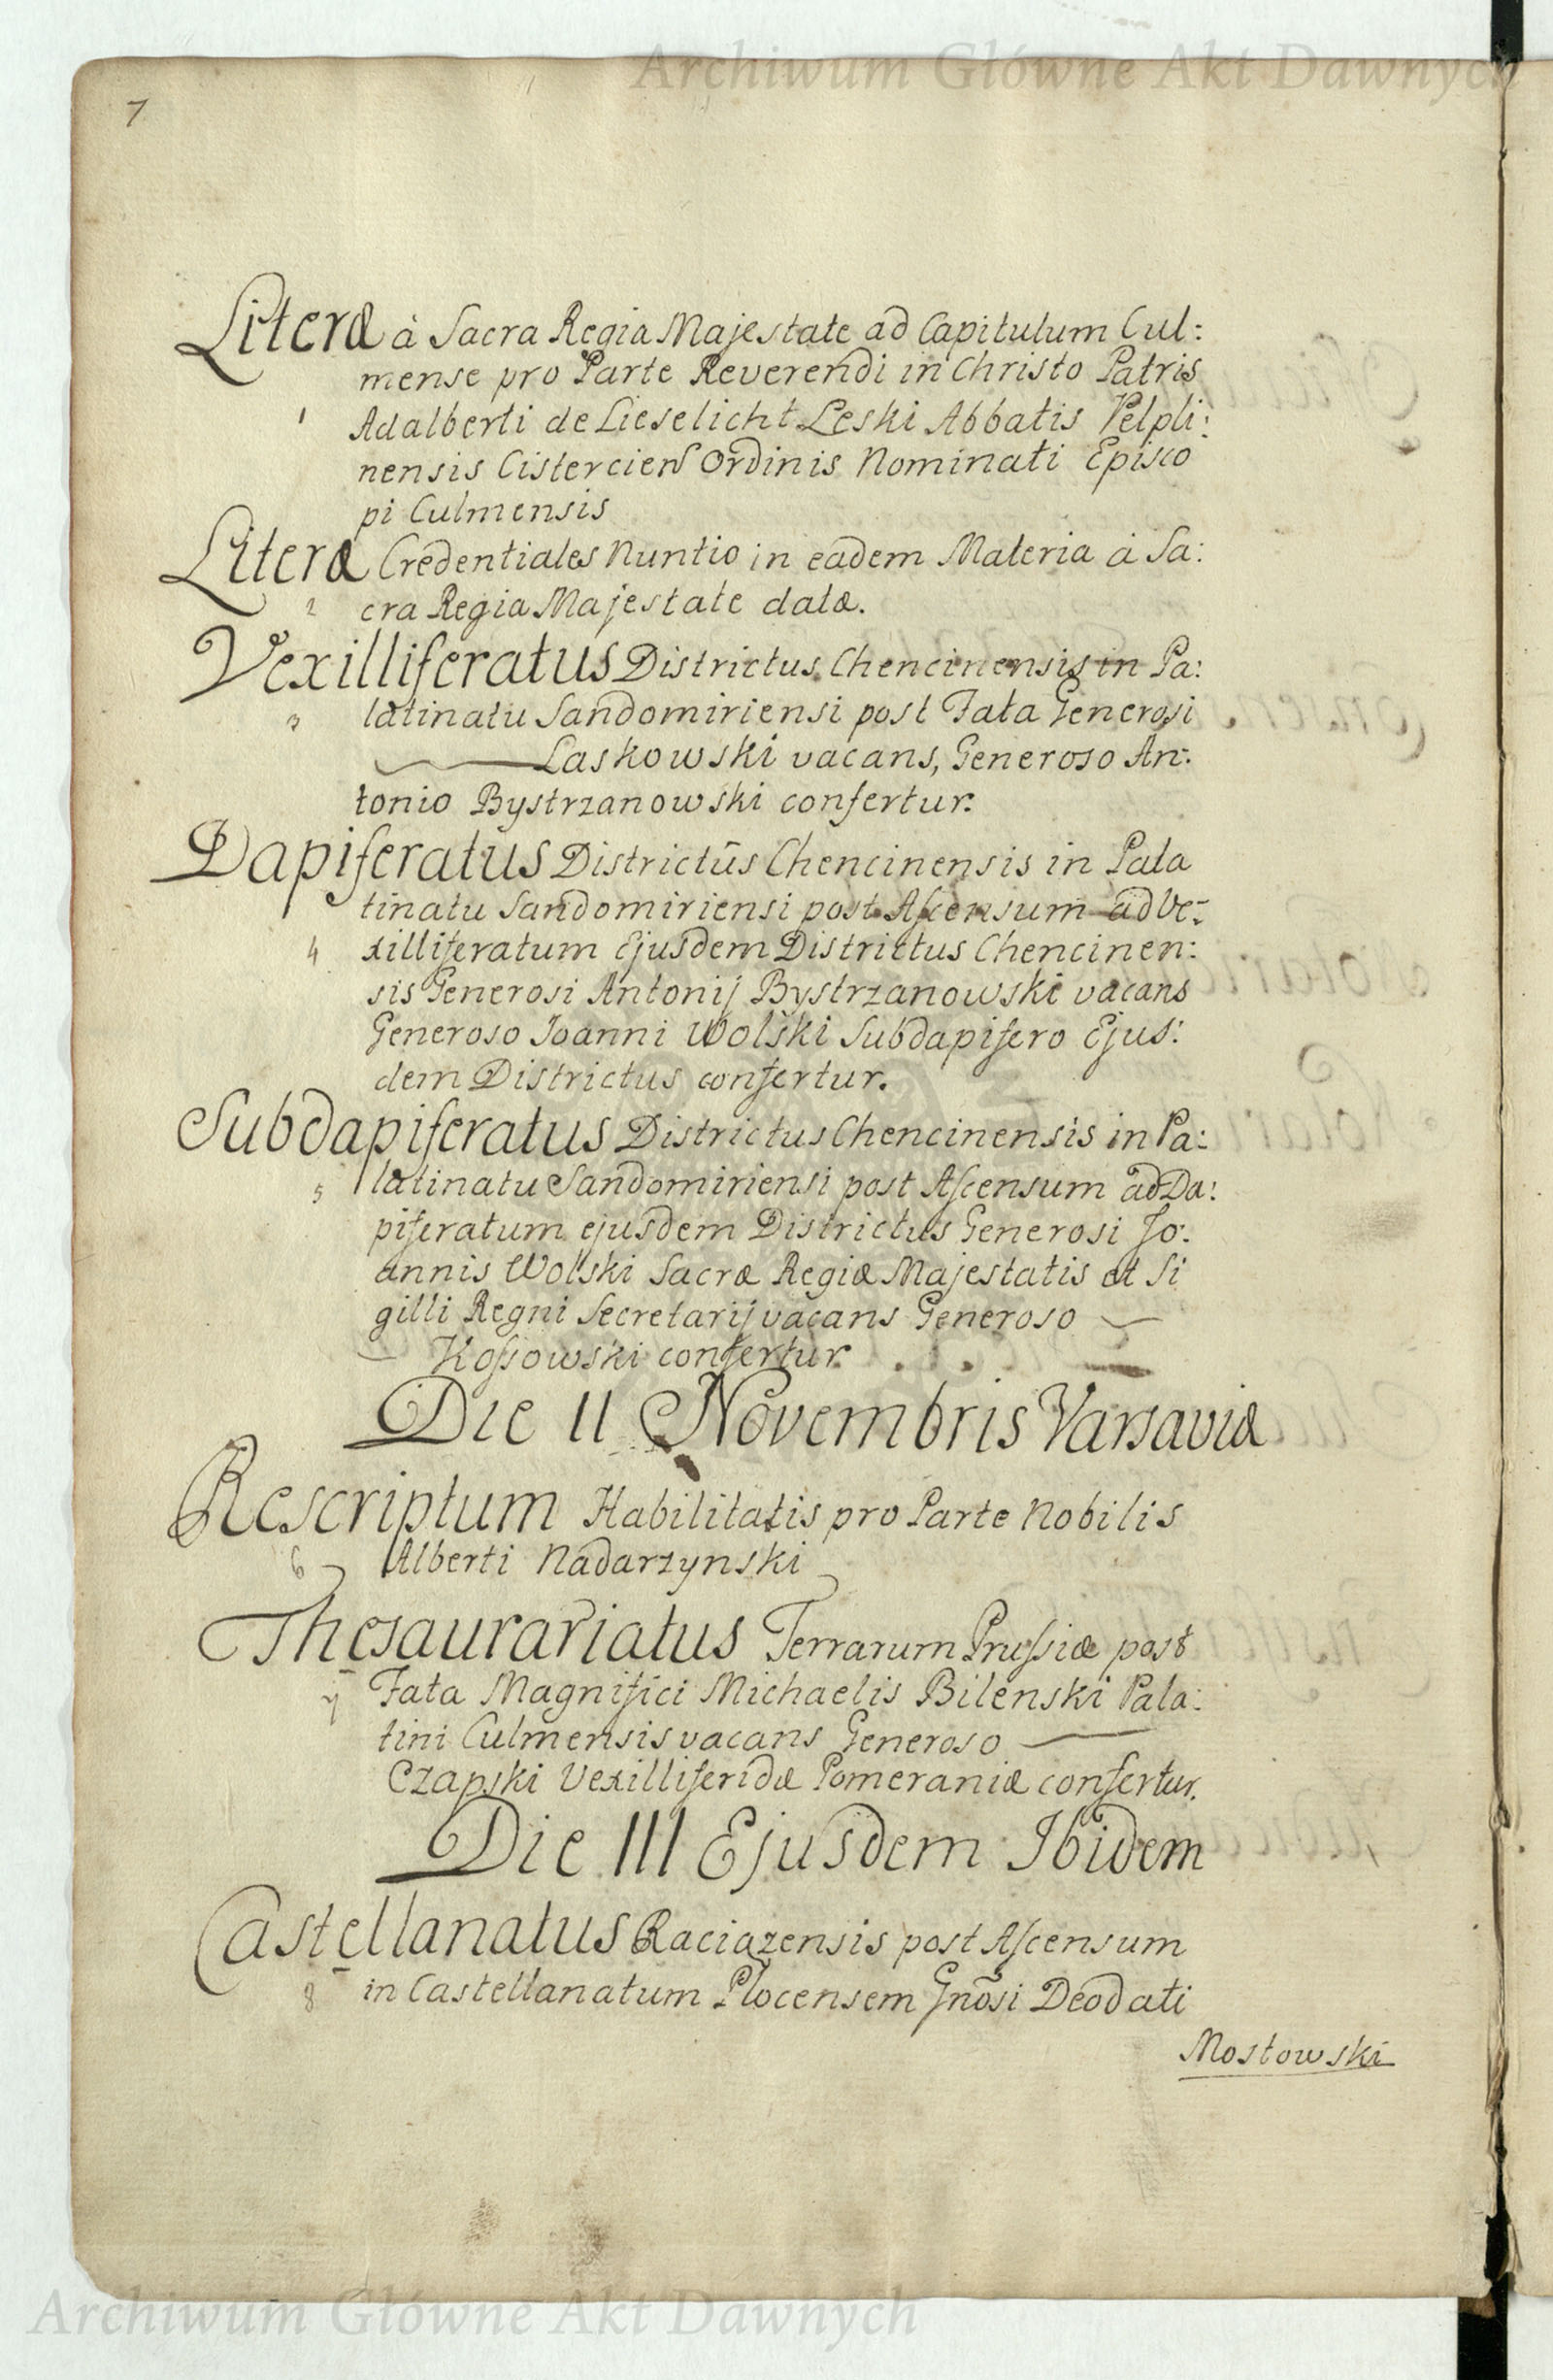 Archiwum Główne Akt Dawnych
7
Literæ à Sacra Regia Majestate ad Capitulum Cul:
mense pro Parte Reverendi in Christo Patris
1 Adalberti de Lieselicht Leski Abbatis Pelpli:
nensis Cistercien Ordinis Nominati Episco
pi Culmensis
Literæ Credentiales Nuntio in eadem Materia à Sa:
2 cra Regia Majestate datæ.
Vexilliferatus Districtus Chencinensis in Pa:
3 latinatu Sandomiriensi post Fata Generosi
Laskowski vacans, Generoso An:
tonio Bystrzanowski confertur.
Dapiferatus Districtûs Chencinensis in Pala
tinatu Sandomiriensi post Ascensum ad Ve:
4 xilliferatum Ejusdem Districtus Chencinen:
sis Generosi Antonij Bystrzanowski vacans
Generoso Joanni Wolski Subdapifero Ejus:
dem Districtus confertur.
Subdapiferatus Districtus Chencinensis in Pa:
5 latinatu Sandomiriensi post Ascensum ad Da:
piferatum ejusdem Districtus Generosi Jo:
annis Wolski Sacræ Regiæ Majestatis et Si
gilli Regni Secretarij vacans Generoso
Kossowski confertur.
Die II Novembris Varsaviæ
Rescriptum Habilitatis pro Parte Nobilis
6 Alberti Nadarzynski
Thesaurariatus Terrarum Prussiæ post
7 Fata Magnifici Michaelis Bilenski Pala:
tini Culmensis vacans Generoso
Czapski Vexilliferidæ Pomeraniæ confertur.
Die III Ejusdem Ibidem
Castellanatus Raciązensis post Ascensum
8 in Castellanatum Plocensem Gnõsi Deodati
Mostowski
Archiwum Główne Akt Dawnych